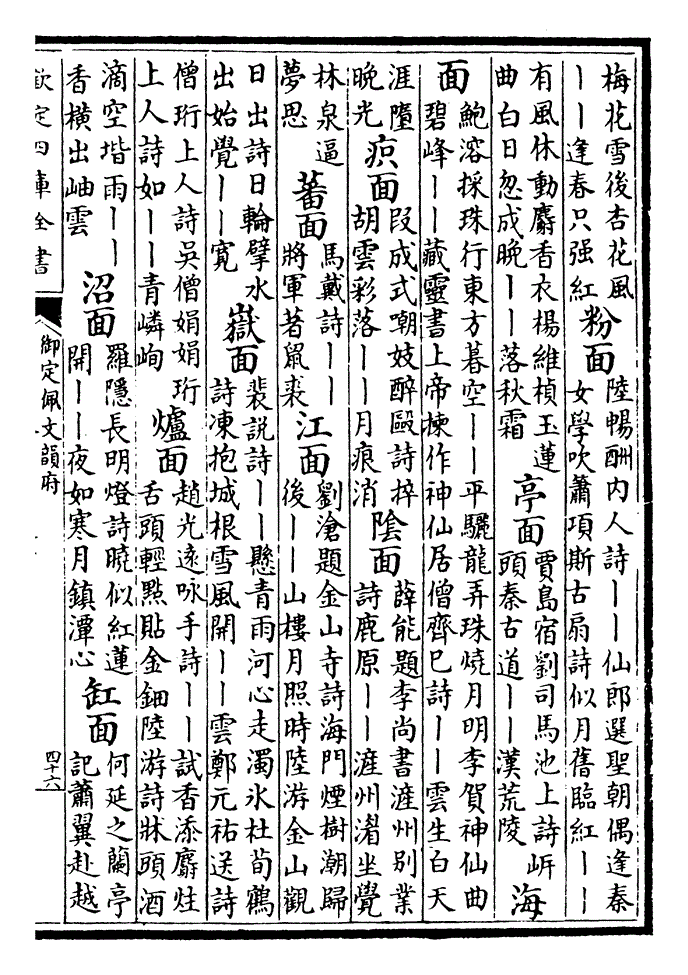 梅花雪後杏花風
丨丨逢春只强紅
粉面
陸暢酬内人詩丨丨仙郎選聖朝偶逢秦
女學吹簫項斯古扇詩似月舊臨紅丨丨
有風休動麝香衣楊維楨玉蓮
曲白日忽成晚丨丨落秋霜
亭面
賈島宿劉司馬池上詩岍
頭秦古道丨丨漢荒陵
海
面
鮑溶採珠行東方暮空丨丨平驪龍弄珠燒月明李賀神仙曲
碧峰丨丨藏靈書上帝楝作神仙居僧齊巳詩丨丨雲生白天
涯墮
晚光
疻面
段成式嘲妓醉毆詩捽
胡雲彩落丨丨月痕消
陰面
薛能題李尚書漄州别業
詩鹿原丨丨漄州渚坐覺
林泉逼
夢思
蕃面
馬戴詩丨丨
將軍著鼠裘
江面
劉滄題金山寺詩海門煙樹潮歸
後丨丨山樓月照時陸游金山觀
日出詩日輪擘水
出始覺丨丨寛
嶽面
裴説詩丨丨懸青雨河心走濁氷杜荀鶴
詩凍抱城根雪風開丨丨雲鄭元祐送詩
僧珩上人詩吴僧娟娟珩
上人詩如丨丨青嶙峋
爐面
趙光逺咏手詩丨丨試香添麝炷
舌頭輕㸃貼金鈿陸游詩牀頭酒
滴空堦雨丨丨
香横出岫雲
沼面
羅隱長明燈詩暁似紅蓮
開丨丨夜如寒月鎮潭心
缸面
何延之蘭亭
記蕭翼赴越
欽定四庫全書
御定佩文韻府
四十六